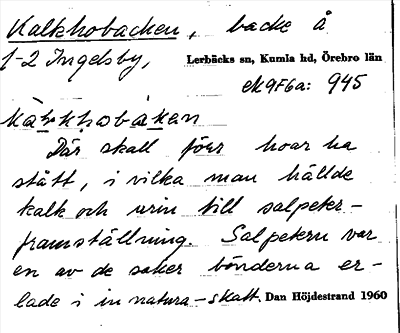 Kalkhobacken, backe å
1-2 Ingelsby,
Lerbäcks sn, Kumla hd, Örebro län
ek 9F6a: 945
kàrkhobàkan
Där skall förr hoar ha
stått, i vilka man hällde
kalk och urin till salpeter-
framställning. Salpetern var
en av de saker bönderna er-
lade i in natura-skatt. Dan Höjdestrand 1960